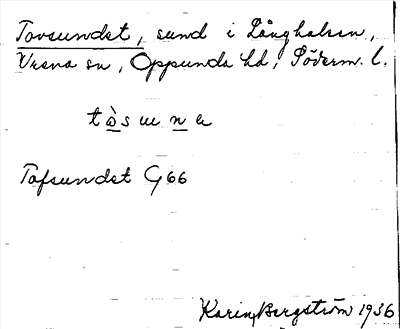 Tovsundet, sund i Långhalsen,
Vrena sn, Oppunda hd, Söderm. l.
tȯ̀sunə
Tofsundet G66
Karin Bergström 1936